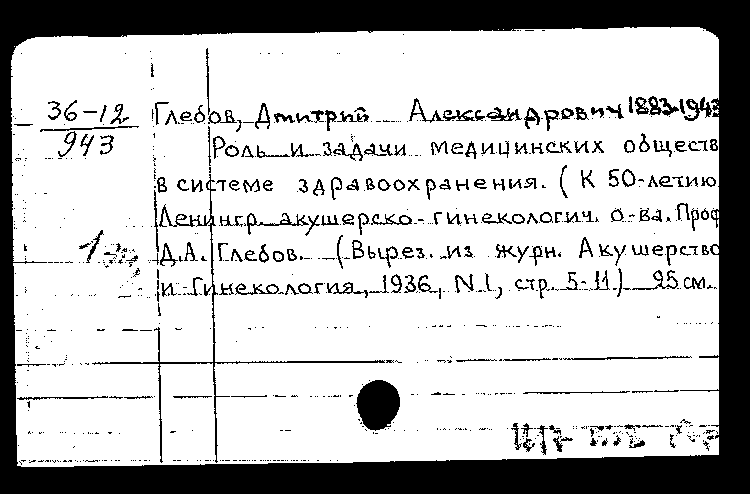 36-12
943
Глебов, Дмитрий Александрович 1883-1943
Роль и задачи медицинских обществ
в системе здравоохранения. (К 50-летию
Ленингр. акушерско-гинекологич. о-ва. Проф
Д.А. Глебов. (Вырез. из журн. Акушерство
и Гинекология, 1936, N 1, стр. 5-11.) 25 см.